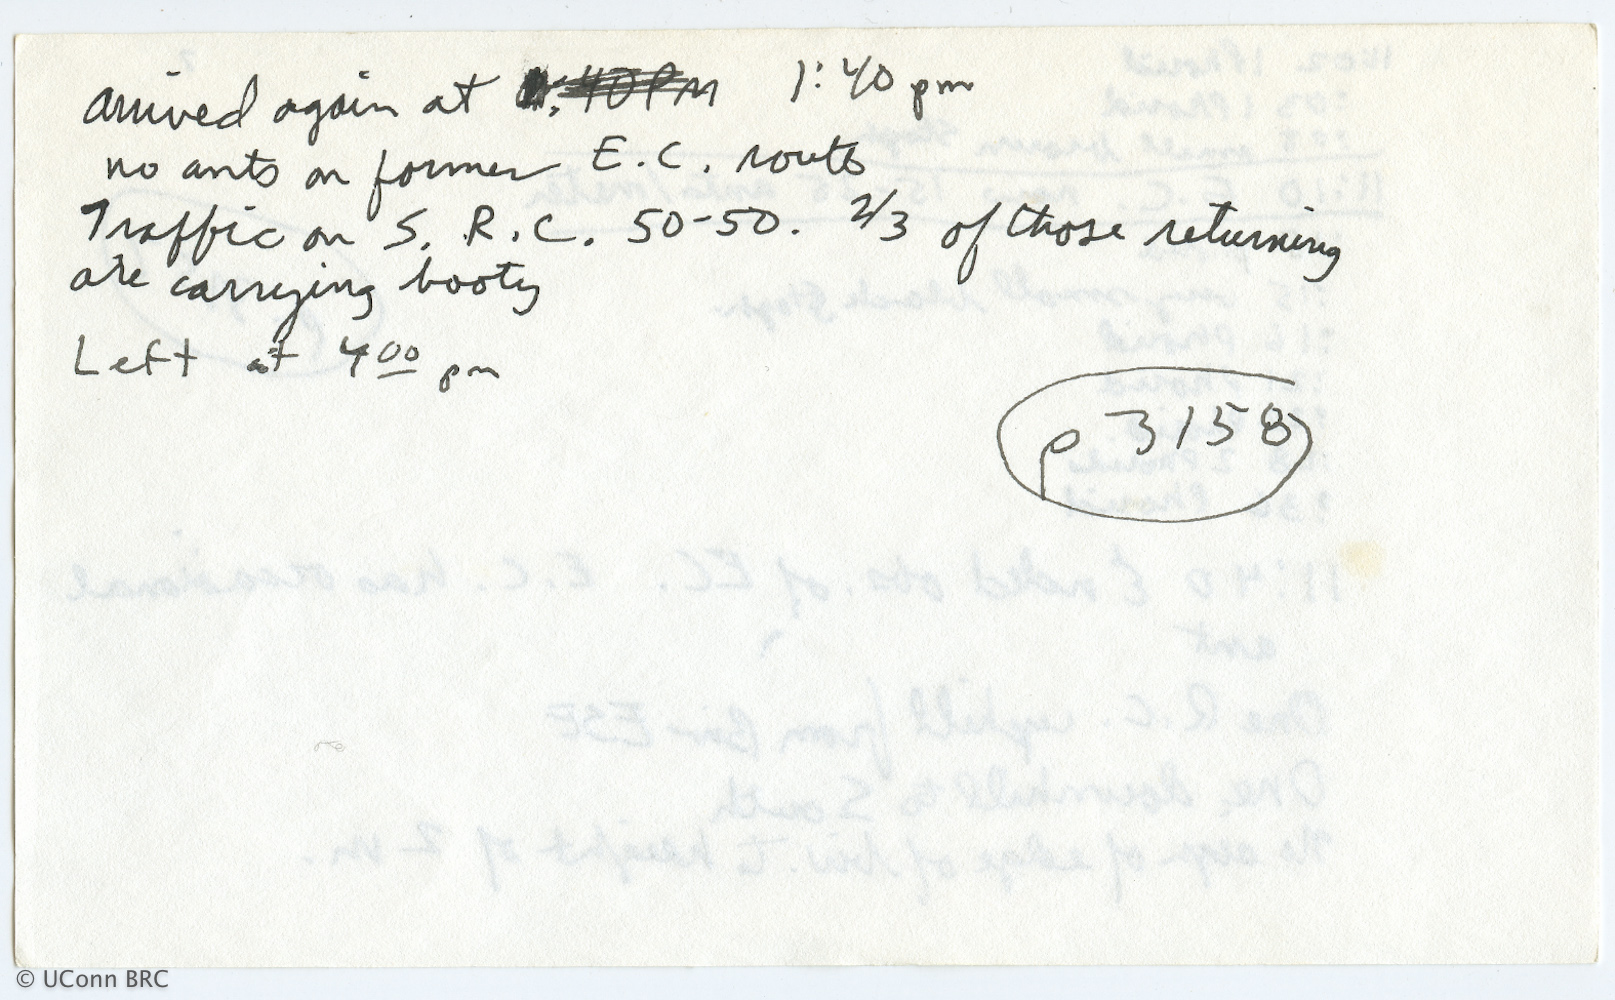 arrived again at 1:40 pm
no ants on former E.C. route
Traffic on S. R.C. 50-50. 2/3 of those returning
are carrying booty
Left at 400 pm
p 3158
© UConn BRC